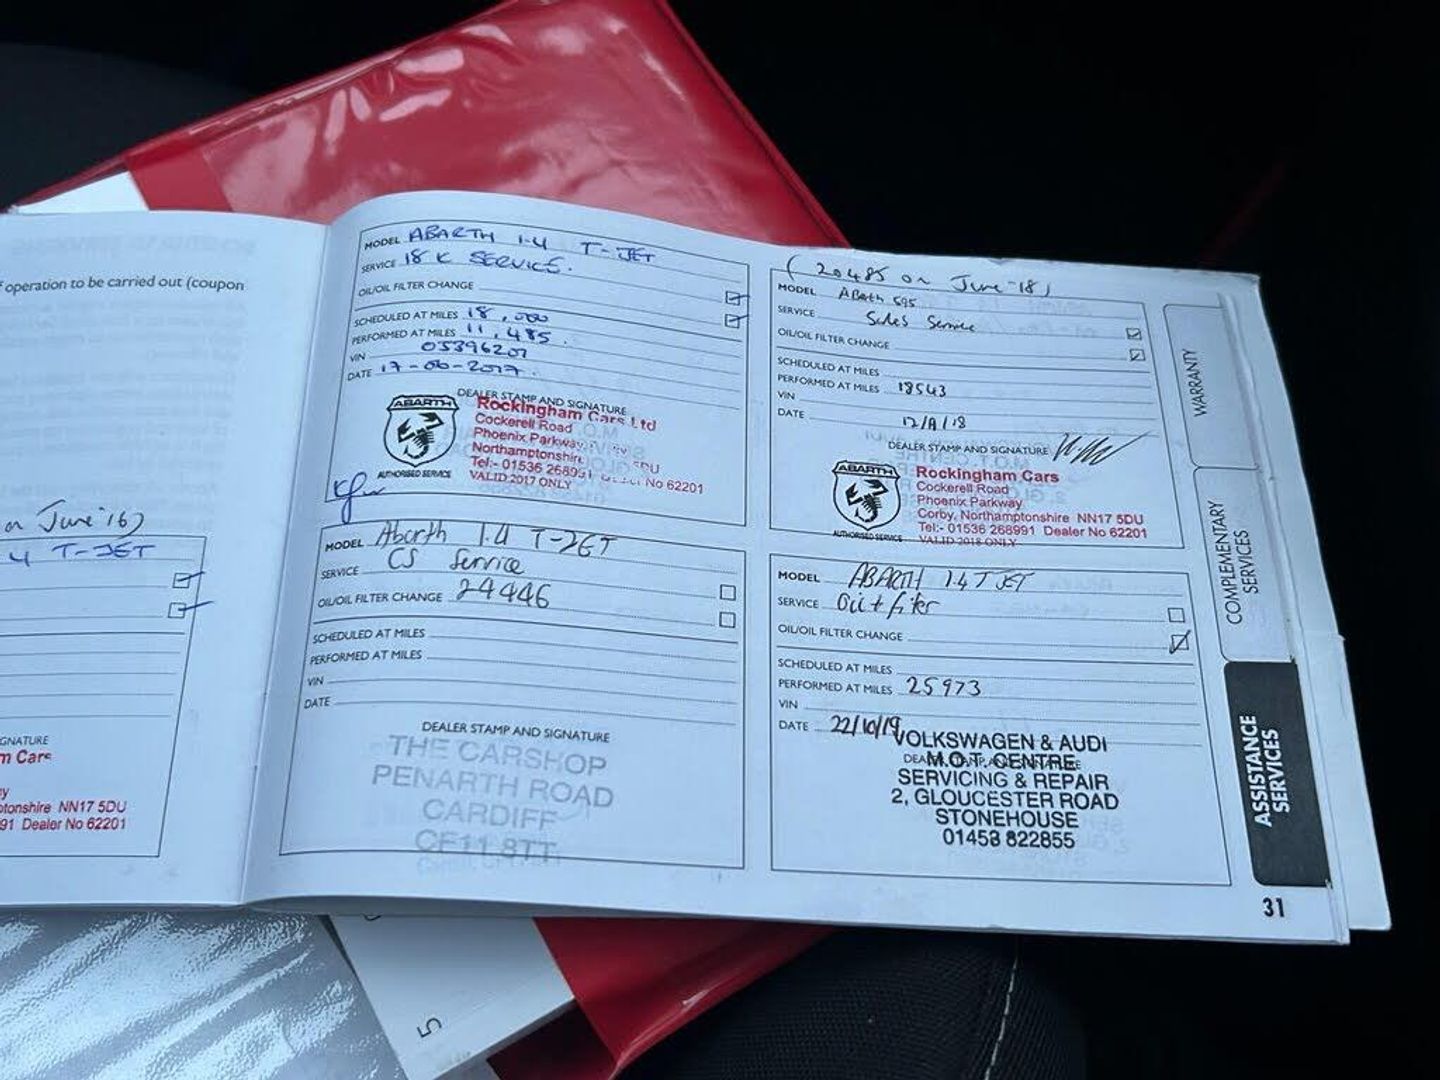 f operation to be carried out (coupon
on June '16)
4 T-JET
GNATURE
m Cars
tonshire NN17 5DU
91 Dealer No 62201
MODEL ABARTH 1.4 T-JET
SERVICE 18K SERVICE.
OIL/OIL FILTER CHANGE
SCHEDULED AT MILES 18,000
PERFORMED AT MILES 11,485.
VIN 05396207
DATE 17-06-2017.
DEALER STAMP AND SIGNATURE
ABARTH
AUTHORISED SERVICE
Rockingham Cars Ltd
Cockerell Road
Phoenix Parkway
Northamptonshire 5DU
Tel:- 01536 268991 No 62201
VALID 2017 ONLY
MODEL Abarth 1.4 T-JET
SERVICE CS Service
OIL/OIL FILTER CHANGE 24446
SCHEDULED AT MILES
PERFORMED AT MILES
VIN
DATE
DEALER STAMP AND SIGNATURE
THE CARSHOP
PENARTH ROAD
CARDIFF
CF11 8TT
(20485 on June '18)
MODEL Abarth 595
SERVICE Sales Service
OIL/OIL FILTER CHANGE
SCHEDULED AT MILES
PERFORMED AT MILES 18543
VIN
DATE 12/1/18
DEALER STAMP AND SIGNATURE
ABARTH
AUTHORISED SERVICE
Rockingham Cars
Cockerell Road
Phoenix Parkway
Corby, Northamptonshire NN17 5DU
Tel:- 01536 268991 Dealer No 62201
VALID 2018 ONLY
MODEL ABARTH 1.4 T JET
SERVICE Oil + filter
OIL/OIL FILTER CHANGE
SCHEDULED AT MILES
PERFORMED AT MILES 25973
VIN
DATE 22/10/19
VOLKSWAGEN & AUDI
M.O.T. CENTRE
SERVICING & REPAIR
2, GLOUCESTER ROAD
STONEHOUSE
01453 822855
WARRANTY
COMPLEMENTARY SERVICES
ASSISTANCE SERVICES
31
5